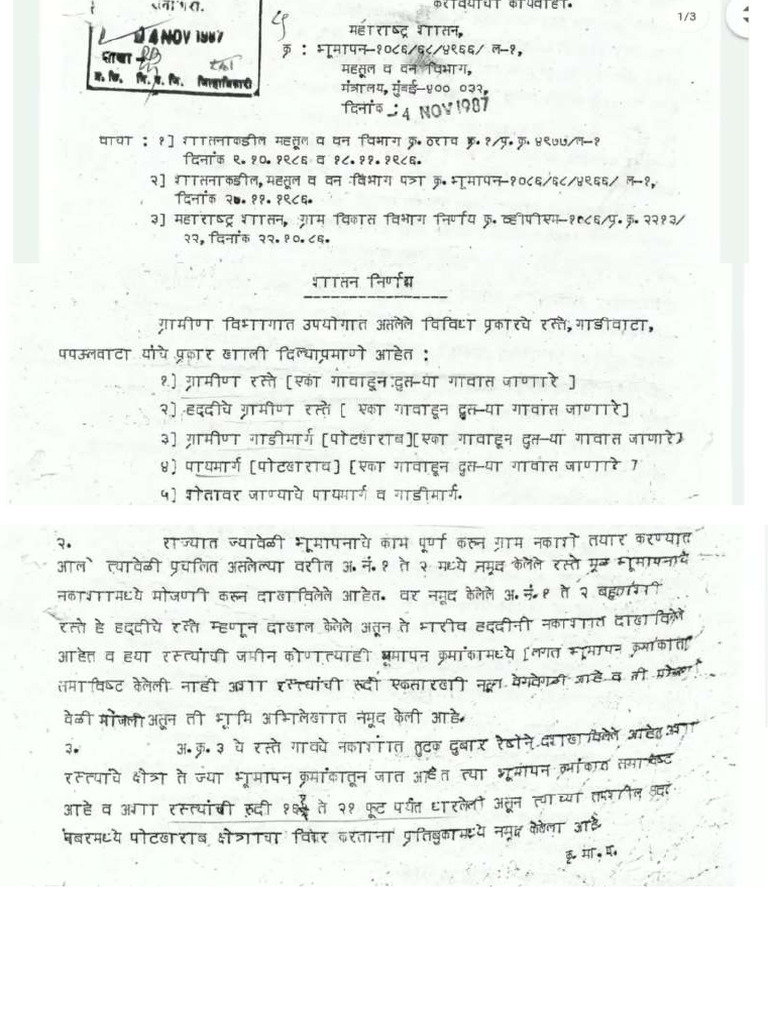 1/3
4 NOV 1987
शाखा
जिल्हाधिकारी
करावयाची कार्यवाही.
महाराष्ट्र शासन,
क्र : भूमापन-१०८६/६८/४९६६/ ल-१,
महसूल व वन विभाग,
मंत्रालय, मुंबई-४०० ०३२,
दिनांक :- 4 NOV 1987
वाचा : १] शासनाकडील महसूल व वन विभाग क्र. ठराव क्र. १/प्र.क्र. ४९७७/ल-१
दिनांक ९.१०.१९८६ व १८.११.१९८६.
२] शासनाकडील, महसूल व वन विभाग पत्र क्र. भूमापन-१०८६/६८/४९६६/ ल-१,
दिनांक २७.११.१९८६.
३] महाराष्ट्र शासन, ग्राम विकास विभाग निर्णय क्र. व्हीपीएम-१०८६/प्र.क्र. २२१३/
२२, दिनांक २२.१०.८६.
शासन निर्णय
ग्रामीण विभागात उपयोगात असलेले विविध प्रकारचे रस्ते, गाडीवाटा,
पपऊलवाटा यांचे प्रकार खाली दिल्याप्रमाणे आहेत :
१.] ग्रामीण रस्ते [एका गावाहून दुस-या गावास जाणारे ]
२] हद्दीचे ग्रामीण रस्ते [ एका गावाहून दुस-या गावास जाणारे]
३] ग्रामीण गाडीमार्ग [पोटखराब][एका गावाहून दुस-या गावास जाणारे]
४] पायमार्ग [पोटखराब] [एका गावाहून दुस-या गावास जाणारे ]
५] शेतावर जाण्याचे पायमार्ग व गाडीमार्ग.
२. राज्यात ज्यावेळी भूमापनाचे काम पूर्ण करुन ग्राम नकाशे तयार करण्यात
आले त्यावेळी प्रचलित असलेल्या वरील अ.नं.१ ते २ मध्ये नमूद केलेले रस्ते मूळ भूमापनाचे
नकाशामध्ये मोजणी करुन दाखविलेले आहेत. वर नमूद केलेले अ.नं.१ ते २ बहुतांशी
रस्ते हे हद्दीचे रस्ते म्हणून दाखल केलेले असून ते भारीव हद्दीनी नकाशात दाखविलेले
आहेत व हया रस्त्यांची जमीन कोणत्याही भूमापन क्रमांकामध्ये [लगत भूमापन क्रमांकात]
समाविष्ट केलेली नाही अशा रस्त्यांची रुदी एकसारखी नसून वेगवेगळी आहे व ती मोजणी
वेळी मोजली असून ती भूमि अभिलेखात नमूद केली आहे.
३. अ.क्र.३ चे रस्ते गावचे नकाशात तुटक दुबार रेषेने दाखविलेले आहेत अशा
रस्त्यांचे क्षेत्र ते ज्या भूमापन क्रमांकातून जात आहेत त्या भूमापन क्रमांकात समाविष्ट
आहे व अशा रस्त्यांची रुदी १६ १/२ ते २१ फूट पर्यंत धारलेली असून त्याच्या तपशील सदर
नंबरमध्ये पोटखराब क्षेत्राचा विचार करताना प्रतिबुकामध्ये नमूद केलेला आहे.
कृ.मा.प.